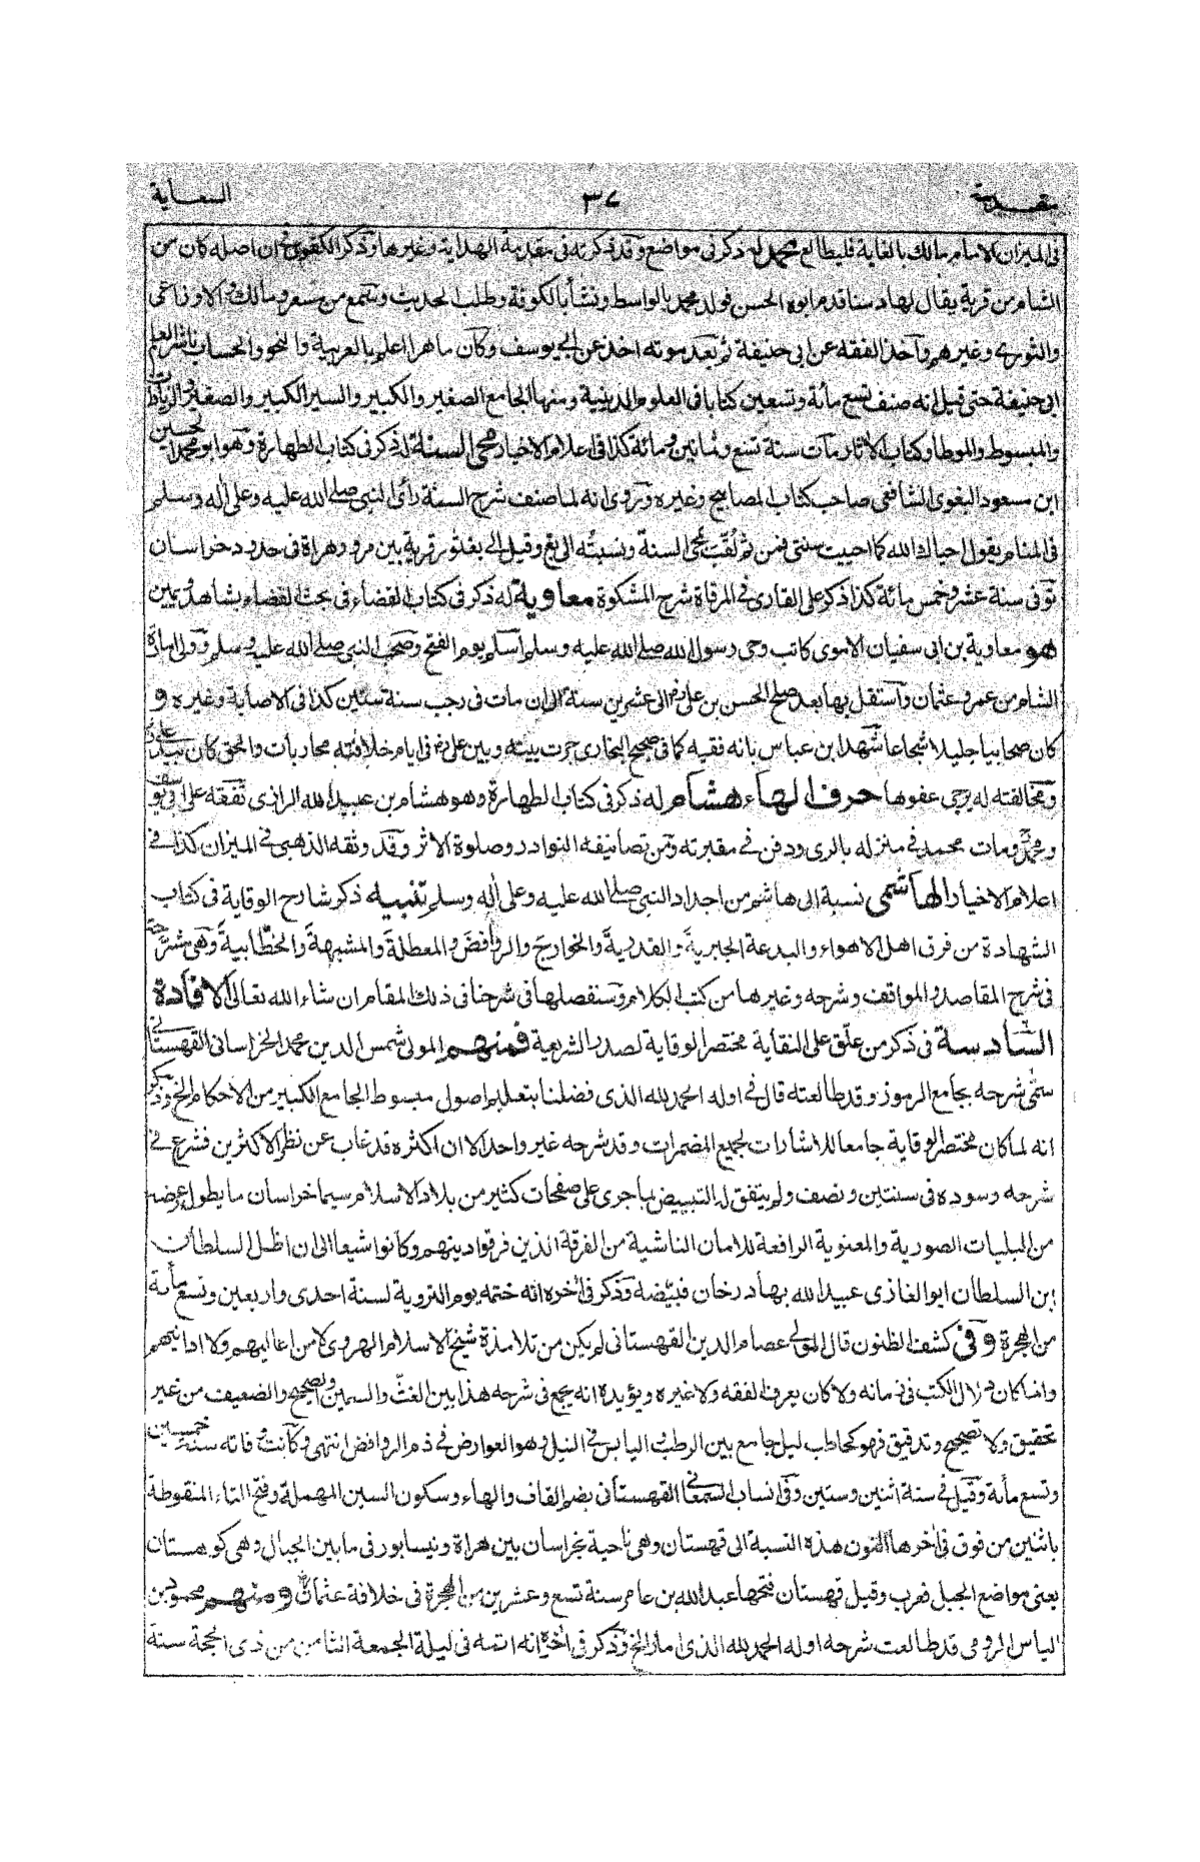 مقدمة ٣٧ السعاية
فى الميزان الامام مالك بالغاية فليطالع محمد له ذكر فى مواضع وقد ذكرته فى مقدمة الهداية وغيرها وذكر الكفوى ان اصله كان من
الشام من قرية يقال لها دسنا قدم ابوه الحسن فولد محمد بالواسط ونشأ بالكوفة وطلب الحديث وسمع من مسعر ومالك والاوزاعى
والثورى وغيرهم وأخذ الفقه عن ابى حنيفة ثم بعد موته اخذ عن ابى يوسف وكان ماهرا اعلم بالعربية والنحو والحساب ناشر العلم
ابى حنيفة حتى قيل انه صنف تسع مأة وتسعين كتابا فى العلوم الدينية ومنها الجامع الصغير والكبير والسير الكبير والصغير والزيادات
والمبسوط والموطا وكتاب الاثار مات سنة تسع وثمانين ومائة كذا فى اعلام الاخيار محى السنة له ذكر فى كتاب الطهارة وهو ابو محمد الحسين
ابن مسعود البغوى الشافعى صاحب كتاب المصابيح وغيره وروى انه لما صنف شرح السنة رأى النبى صلى الله عليه وعلى اله وسلم
فى المنام يقول احياك الله كما احييت سنتى فمن ثم لقب محى السنة ونسبته الى بغ وقيل الى بغشور قرية بين مرو وهراة فى حدود خراسان
توفى سنة عشر وخمس مائة كذا ذكر على القارى فى المرقاة شرح المشكوة معاوية له ذكر فى كتاب القضاء فى بحث القضاء بشاهد ويمين
هو معاوية بن ابى سفيان الاموى كاتب وحى رسول الله صلى الله عليه وسلم أسلم يوم الفتح وصحب النبى صلى الله عليه وسلم وولى امارة
الشام من عمر وعثمان واستقل بها بعد صلح الحسن بن على رض الى عشرين سنة الى ان مات فى رجب سنة ستين كذا فى الاصابة وغيره و
كان صحابيا جليلا شجاعا شهد ابن عباس بانه فقيه كما فى صحيح البخارى جرت بينه وبين على رض فى ايام خلافته محاربات والحق كان بيد على
ومخالفته له يرجى عفوها حرف الهاء هشام له ذكر فى كتاب الطهارة وهو هشام بن عبيد الله الرازى تفقه على ابى يوسف
ومحمد ومات محمد فى منزله بالرى ودفن فى مقبرته ومن تصانيفه النوادر وصلوة الاثر وقد وثقه الذهبى فى الميزان كذا فى
اعلام الاخيار الهاشمى نسبة الى هاشم من اجداد النبى صلى الله عليه وعلى اله وسلم تنبيه ذكر شارح الوقاية فى كتاب
الشهادة من فرق اهل الاهواء والبدعة الجبرية والقدرية والخوارج والروافض والمعطلة والمشبهة والخطابية وهى مشرحة
فى شرح المقاصد والمواقف وشرحه وغيرها من كتب الكلام وسنفصلها فى شرحنا فى ذلك المقام ان شاء الله تعالى الافادة
السادسة فى ذكر من علق على النقاية مختصر الوقاية لصدر الشريعة فمنهم المولى شمس الدين محمد الخراسانى القهستانى
سمى شرحه بجامع الرموز وقد طالعته قال فى اوله الحمد لله الذى فضلنا بتعليم اصول مبسوط الجامع الكبير من الاحكام الخ وذكر
انه لما كان مختصر الوقاية جامعا للاشارات لجميع المضمرات وقد شرحه غير واحد الا ان اكثره قد غاب عن نظر الاكثرين فشرع فى
شرحه وسوده فى سنتين ونصف ولم يتفق له التبييض لما جرى على صفحات كثير من بلاد الاسلام سيما خراسان ما يطول عرضه
من البليات الصورية والمعنوية الرافعة للامان الناشية من الفرقة الذين فرقوا دينهم وكانوا شيعا الى ان اظل السلطان
ابن السلطان ابو الغازى عبيد الله بهادر خان فبيضه وذكر فى اخره انه ختمه يوم التروية لسنة احدى واربعين وتسع مأة
من الهجرة وفى كشف الظنون قال المولى عصام الدين القهستانى لم يكن من تلامذة شيخ الاسلام الهروى لا من اعاليهم ولا ادانيهم
وانما كان دلال الكتب فى زمانه ولا كان يعرف الفقه ولا غيره ويؤيده انه يجمع فى شرحه هذا بين الغث والسمين والصحيح والضعيف من غير
تحقيق ولا تصحيح وتدقيق فهو كحاطب ليل جامع بين الرطب واليابس فى النيل وهو العوارض فى ذم الروافض انتهى وكانت وفاته سنة خمسين
وتسع مأة وقيل فى سنة اثنين وستين وفى انساب السمعانى القهستانى بضم القاف والهاء وسكون السين المهملة وفتح التاء المنقوطة
باثنين من فوق فى اخرها النون هذه النسبة الى قهستان وهى ناحية بخراسان بين هراة ونيسابور فى ما بين الجبال وهى كوهستان
يعنى مواضع الجبل فعرب وقيل قهستان فتحها عبد الله بن عامر سنة تسع وعشرين من الهجرة فى خلافة عثمان رض ومنهم محمود بن
الياس الرومى قد طالعت شرحه اوله الحمد لله الذى الخ وذكر فى اخره انه اتمه فى ليلة الجمعة الثامن من ذى الحجة سنة